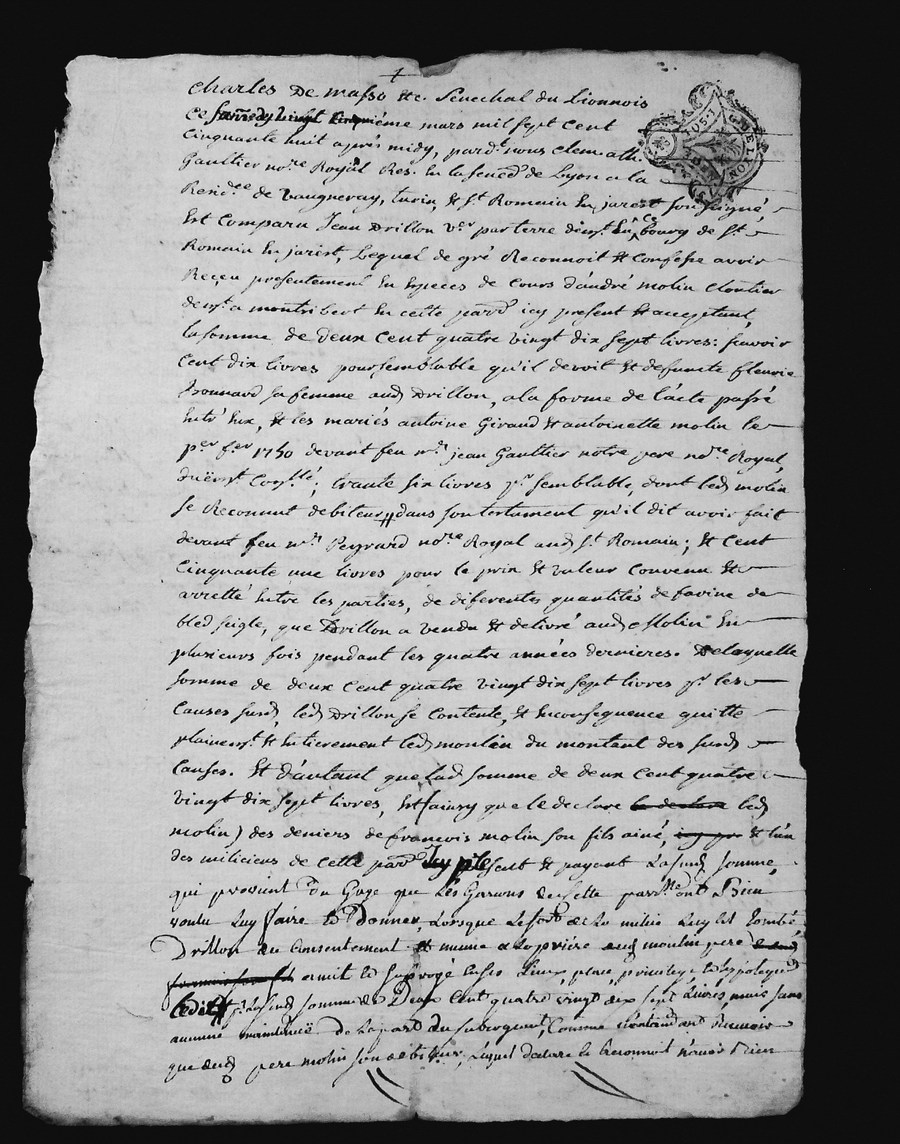 charles De masso &c. Senechal du Lionnois
Ce samedy vingt cinquième mars mil sept cent
Cinquante huit après midy, pard.t nous Clem. ath.
Gaultier no.re Royal Res. En la senec.d de Lyon a la
Resid.ce de Vaugneray, turin, & S.t Romain En jarest soussigné,
Est Comparu Jean Drillon v.er par terre dem.t En Ce bourg de S.t
Romain En jarest, Lequel de gré Reconnoit & Confesse avoir
Reçeu presentement En Especes de Cours d'andré molin Cloutier
dem.t a montribert En cette parr.e icy present & acceptant,
la somme de deux Cent quatre vingt dix sept livres: sçavoir
Cent dix livres pour semblable qu'il devoit & defunte fleurie
Bonnard sa femme aud. Drillon, a la forme de l'acte passé
Entr'Eux, & les mariés antoine Giraud & antoinette molin le
p.er f.er 1750 devant feu m.e jean Gaultier notre pere no.re Royal,
düem.t Con.llé; trante six livres p.r semblable, dont led. molin
se Reconnut debiteur dans son testament qu'il dit avoir fait
devant feu m.e Peyrard no.re Royal aud. S.t Romain; & Cent
Cinquante une livres pour le prix & valeur Convenu &
arretté Entre les parties, de diferentes quantités de farine de
bled seigle, que Drillon a vendu & delivré aud. Molin En
plusieurs fois pendant les quatre années dernieres. De laquelle
somme de deux Cent quatre vingt dix sept livres p.r les
Causes susd. led. Drillon se Contente, & Enconsequence quitte
plainem.t & Entierement led. moulin du montant des susd.
Causes. Et d'autant que lad. somme de deux Cent quatre
vingt dix sept livres, Est (ainsy que le declare le declare led.
molin) des deniers de francois molin son fils ainé, icy pre & l'un
des miliciens de Cette parr.e Icy present & payant La susd. somme,
qui provient Du Gage que Les Garcons de cette parr.e ont Bien
voulu Luy faire & Donner, Lorsque Le sort de La milice Luy Est Tombé
Drillon du Consentement & meme a La prière dud. moulin pere
a mis & subrogé En ses Lieux, place, privilege & hypoteque
p.r La susd. somme de Deux Cent quatre vingt dix sept Livres, mais sans
aucune maintenüe De La part du subrogeant, Comme n'entendant Recevoir
que dud. pere molin son debiteur, Lequel declare & Reconnoit n'avoir Rien